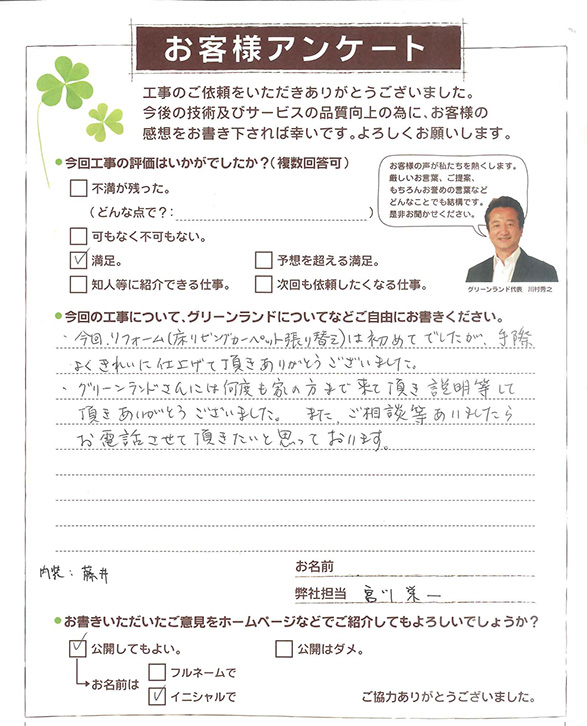 お客様アンケート
工事のご依頼をいただきありがとうございました。
今後の技術及びサービスの品質向上の為に、お客様の
感想をお書き下されば幸いです。よろしくお願いします。
●今回工事の評価はいかがでしたか?(複数回答可)
不満が残った。
(どんな点で?: )
可もなく不可もない。
満足。
予想を超える満足。
知人等に紹介できる仕事。
次回も依頼したくなる仕事。
お客様の声が私たちを熱くします。
厳しいお言葉、ご提案、
もちろんお誉めの言葉など
どんなことでも結構です。
是非お聞かせください。
グリーンランド代表 川村秀之
●今回の工事について、グリーンランドについてなどご自由にお書きください。
・今回、リフォーム(床リビングカーペット張り替え)は初めてでしたが、手際
よくきれいに仕上げて頂きありがとうございました。
・グリーンランドさんには何度も家の方まで来て頂き説明等して
頂きありがとうございました。 また、ご相談等ありましたら
お電話させて頂きたいと思っております。
内装:藤井
お名前
弊社担当 宮川 栄一
●お書きいただいたご意見をホームページなどでご紹介してもよろしいでしょうか?
公開してもよい。
公開はダメ。
お名前は
フルネームで
イニシャルで
ご協力ありがとうございました。